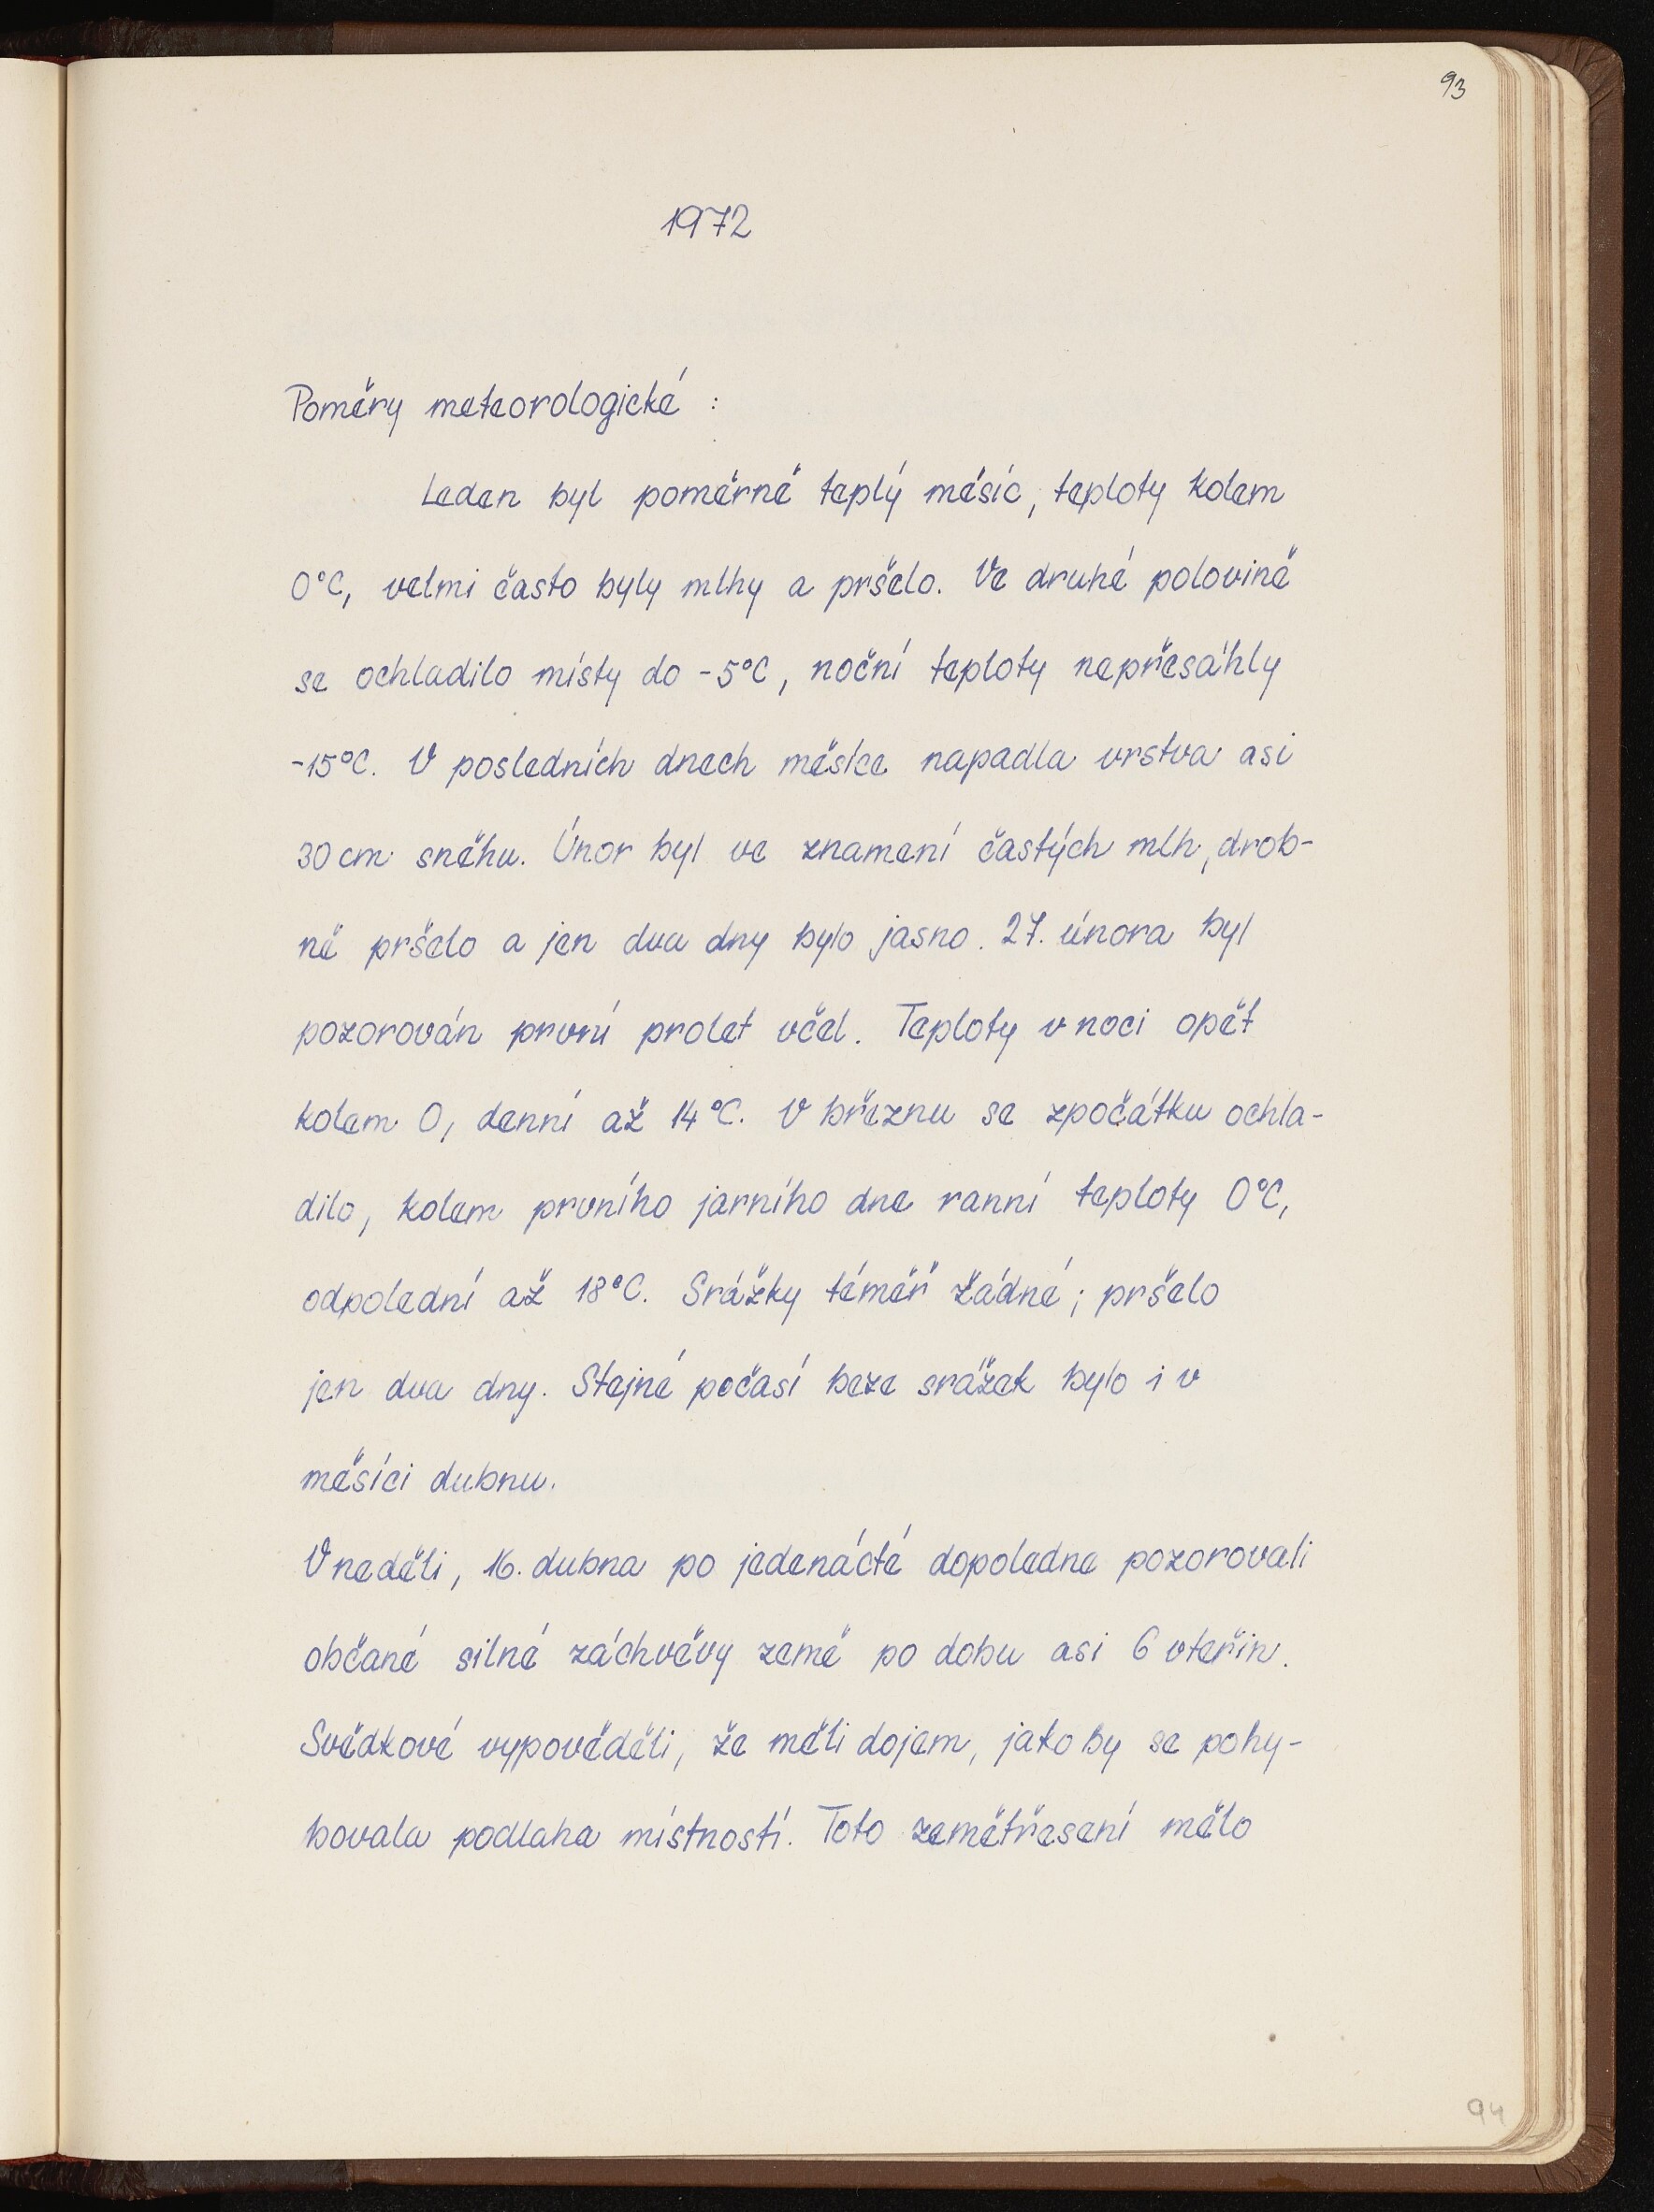 93
1972
Poměry meteorologické :
Leden byl poměrně teplý měsíc, teploty kolem
0°C, velmi často byly mlhy a pršelo. Ve druhé polovině
se ochladilo místy do -5°C, noční teploty nepřesáhly
-15°C. V posledních dnech měsíce napadla vrstva asi
30 cm sněhu. Únor byl ve znamení častých mlh, drob-
ně pršelo a jen dva dny bylo jasno. 27. února byl
pozorován první prolet včel. Teploty v noci opět
kolem 0, denní až 14°C. V březnu se zpočátku ochla-
dilo, kolem prvního jarního dne ranní teploty 0°C,
odpolední až 18°C. Srážky téměř žádné; pršelo
jen dva dny. Stejné počasí beze srážek bylo i v
měsíci dubnu.
V neděli, 16. dubna po jedenácté dopoledne pozorovali
občané silné záchvěvy země po dobu asi 6 vteřin.
Svědkové vypověděli, že měli dojem, jako by se pohy-
bovala podlaha místností. Toto zemětřesení mělo
94